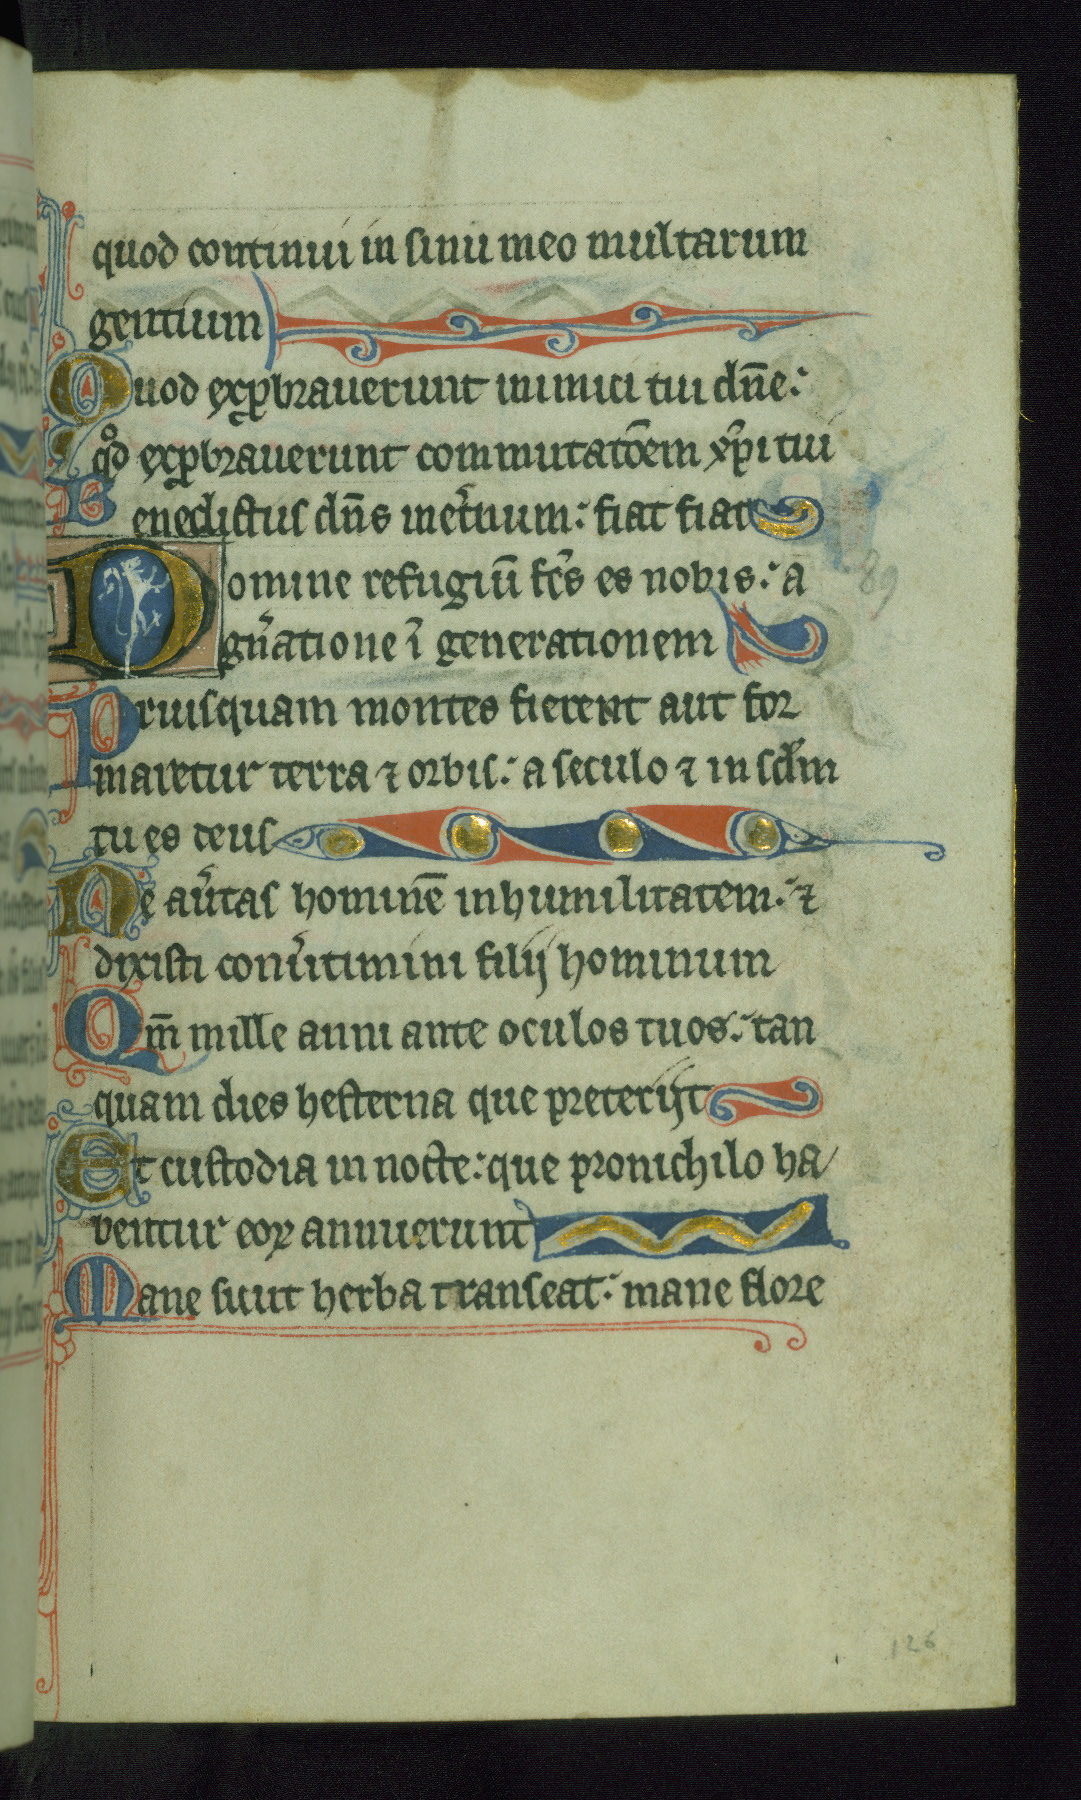 quod continui in sinu meo multarum
gentium
Quod exp̱brauerunt inimici tui dn̄e:
qͦd exp̱brauerunt commutatōem xp̄i tui
Benedictus dn̄s in et̾num: fiat fiat
Domine refugiū fc̄s es nobis: a
89
gn̾atione ī generationem
Priusquam montes fierent aut for
maretur terra ⁊ orbis: a seculo ⁊ in sc̄lm
tu es deus
Ne au̾tas hominē in humilitatem: ⁊
dixisti conu̾timini filij hominum
Qm̄ mille anni ante oculos tuos: tan
quam dies hesterna que preterijt
Et custodia in nocte: que pro nichilo ha
bentur eoꝝ anni erunt
Mane sicut herba transeat: mane flore
126